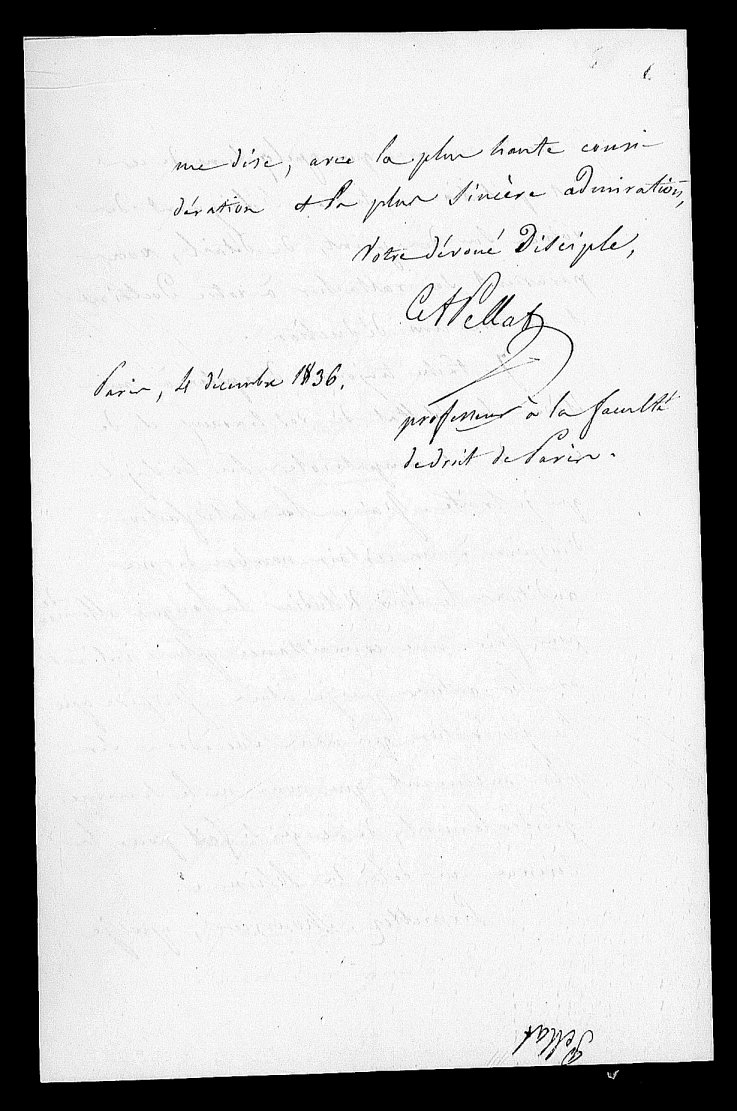 me dise, avec la plus haute consi-
dération et la plus sincère admiration,
Votre dévoué Disciple,
C A Pellat
Paris, 4 décembre 1836.
professeur à la faculté
de droit de Paris.
Pellat